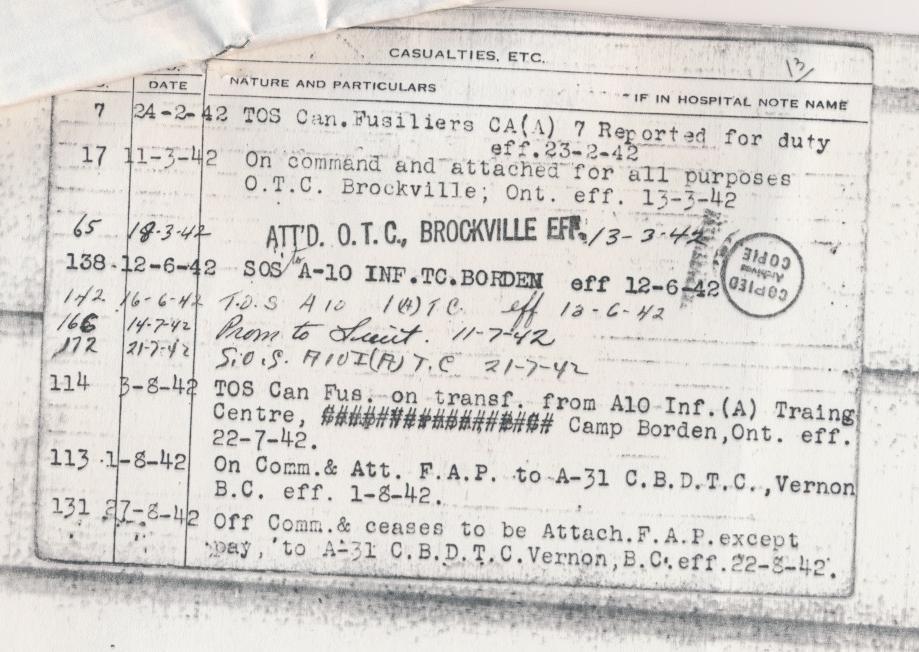 CASUALTIES, ETC.
13/
DATE NATURE AND PARTICULARS IF IN HOSPITAL NOTE NAME
7 24-2-42 TOS Can.Fusiliers CA(A) 7 Reported for duty
eff.23-2-42
17 11-3-42 On command and attached for all purposes
O.T.C. Brockville; Ont. eff. 13-3-42
65 18-3-42 ATT'D. O.T.C., BROCKVILLE EFF. 13-3-42
138 12-6-42 SOS to A-10 INF.TC.BORDEN eff 12-6-42
COPIED
Archives
COPIE
142 16-6-42 T.O.S A10 I(A)T.C. eff 13-6-42
166 14-7-42 Prom to Lieut. 11-7-42
172 21-7-42 S.O.S. A10 I(A) T.C 21-7-42
114 3-8-42 TOS Can Fus. on transf. from A10 Inf.(A) Traing
Centre, ################## Camp Borden,Ont. eff.
22-7-42.
113 1-8-42 On Comm.& Att. F.A.P. to A-31 C.B.D.T.C.,Vernon
B.C. eff. 1-8-42.
131 27-8-42 Off Comm.& ceases to be Attach.F.A.P.except
pay, to A-31 C.B.D.T.C.Vernon,B.C.eff.22-8-42.